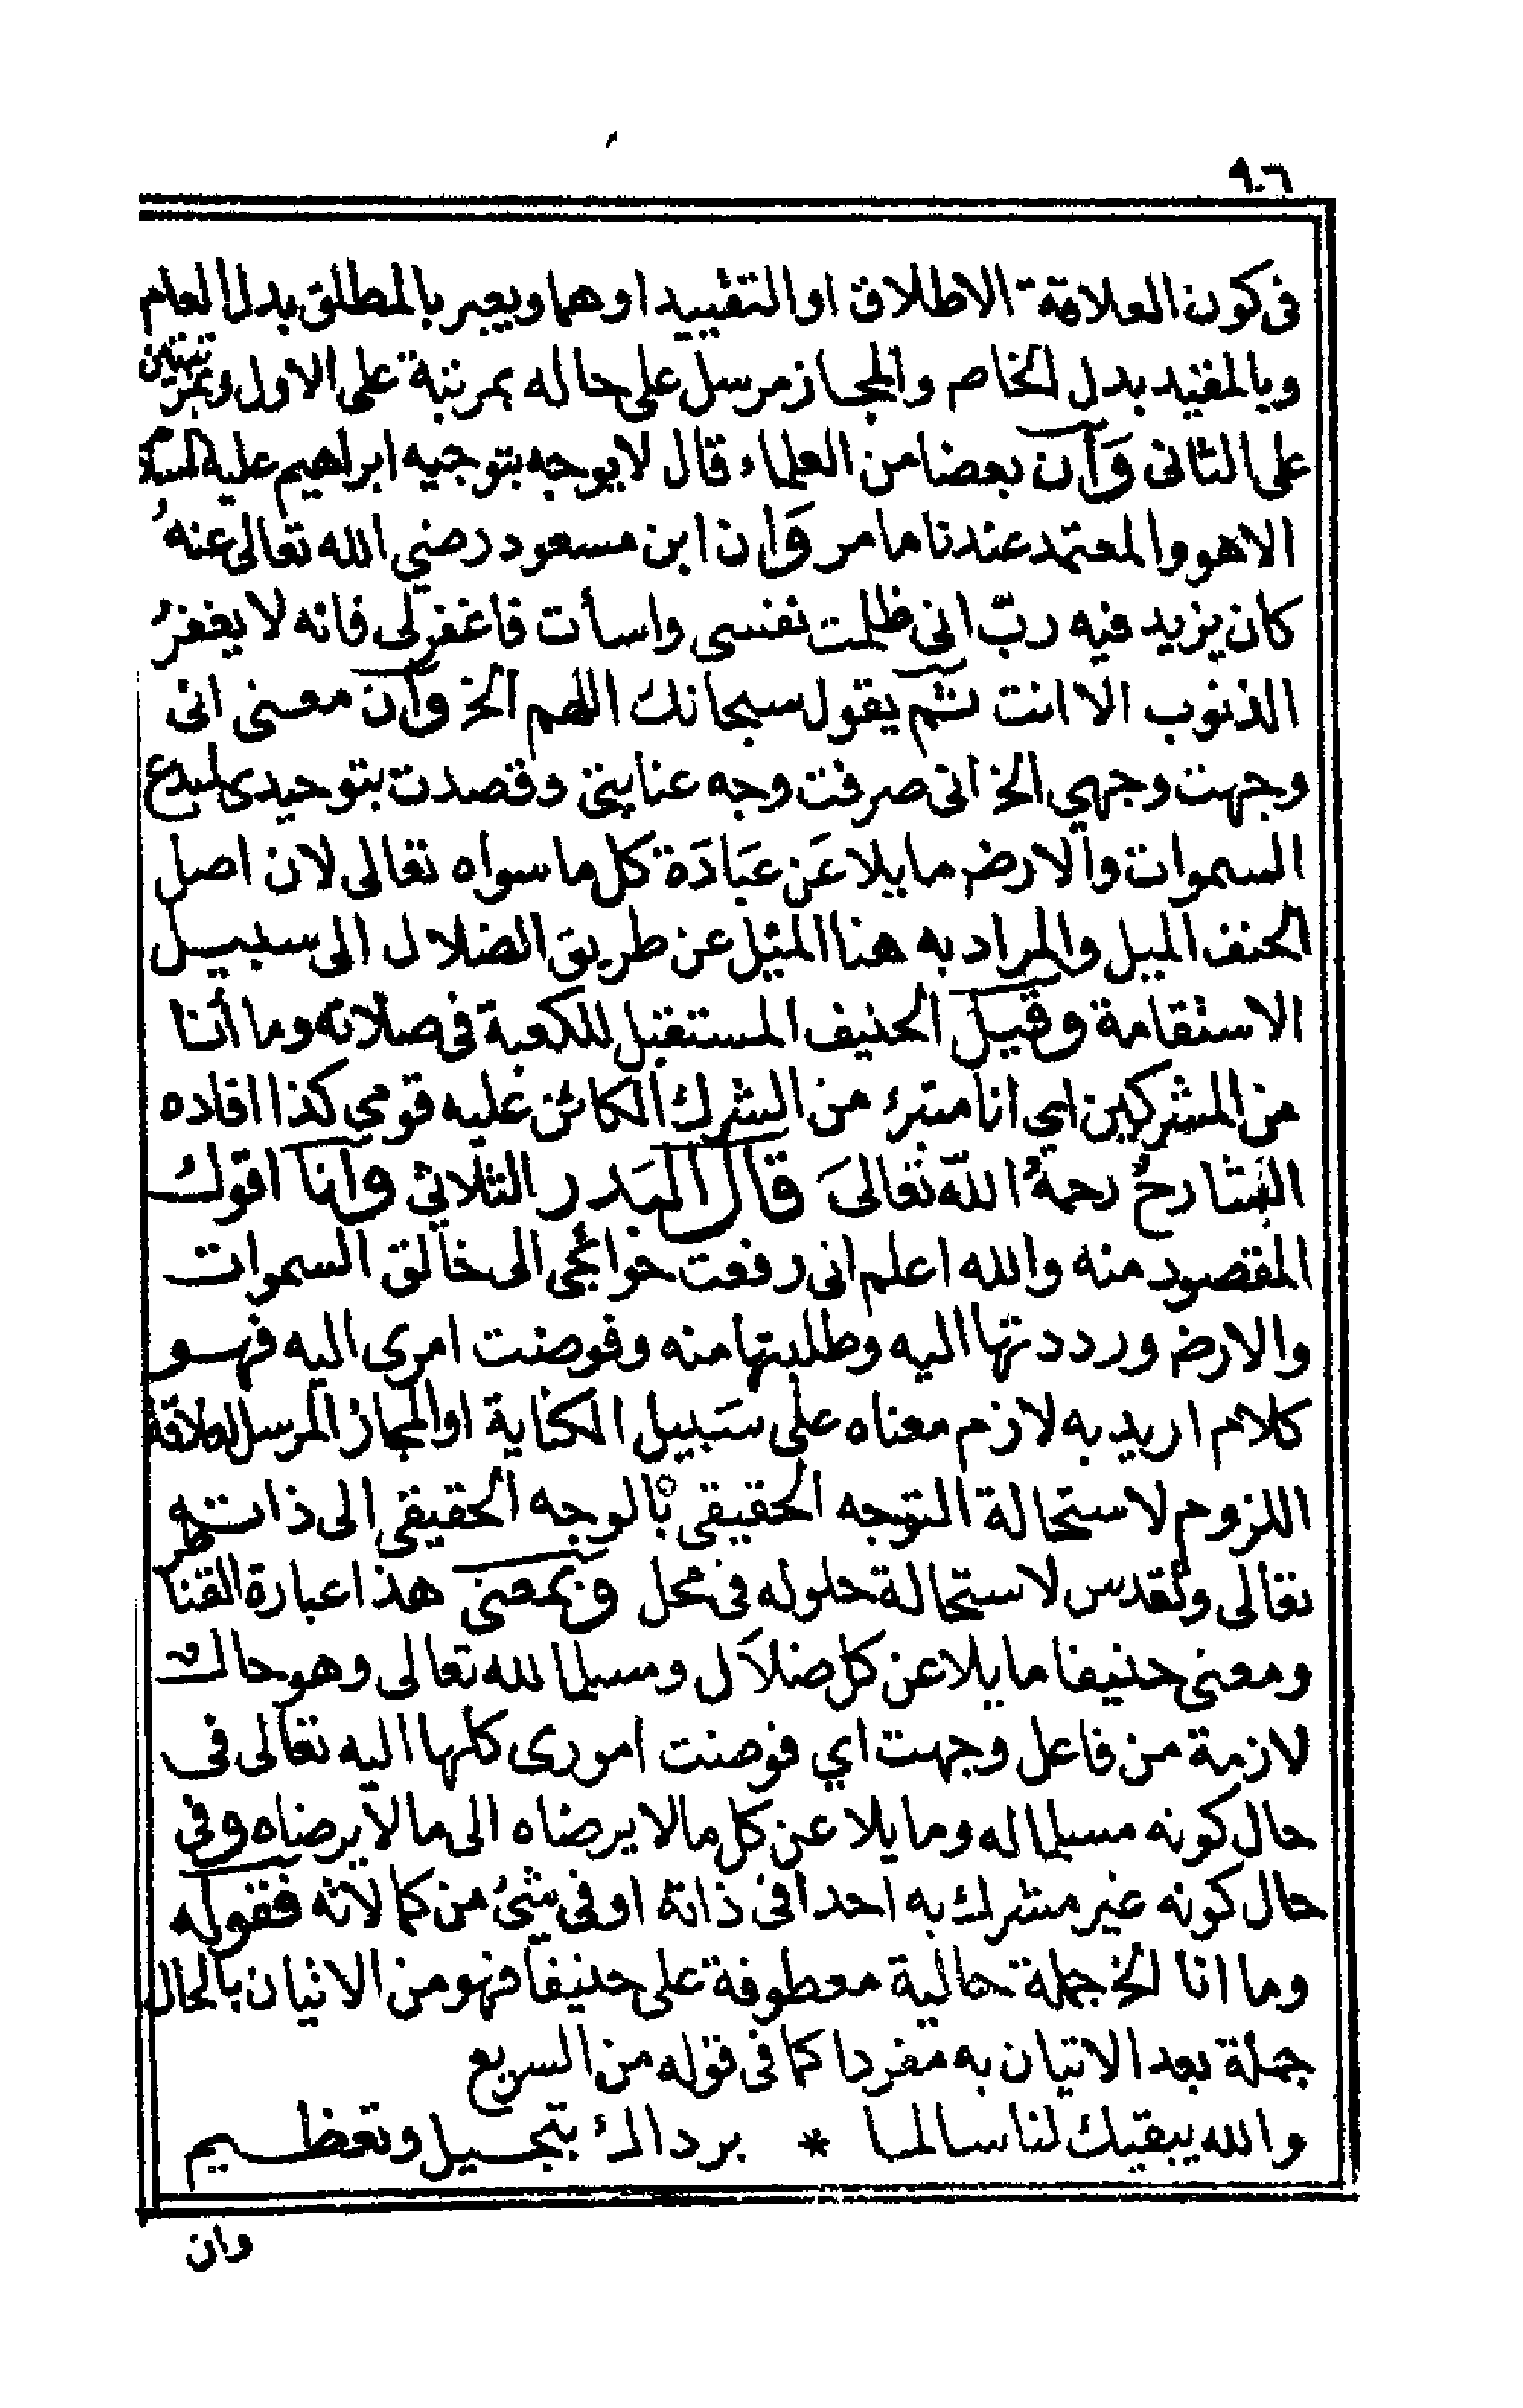 ٩٠٦
فى كون العلاقة الاطلاق او التقييد او هما ويعبر بالمطلق بدل العام
وبالمقيد بدل الخاص والمجاز مرسل على حاله بمرتبة على الاول وبمرتبتين
على الثانى وان بعضا من العلماء قال لا يوجه بتوجيه ابراهيم عليه السلام
الا هو والمعتمد عندنا ما مر وان ابن مسعود رضي الله تعالى عنه
كان يزيد فيه ربّ انى ظلمت نفسى واسأت فاغفر لى فانه لا يغفرُ
الذنوب الا انت ثم يقول سبحانك اللهم الخ وان معنى انى
وجهت وجهي الخ انى صرفت وجه عنايتى وقصدت بتوحيدى لمبدع
السموات والارض مايلا عَن عبَادَة كل ما سواه تعالى لان اصل
الحنف الميل والمراد به هنا الميل عن طريق الضلال الى سبيل
الاستقامة وقيل الحنيف المستقبل للكعبة فى صلاته وما أنا
من المشركين اي انا متبرئ من الشرك الكائن عليه قومي كذا افاده
الشارحُ رحمهُ اللّه تعالىَ قال البَدر الثلاثي وانا اقول
المقصود منه والله اعلم انى رفعت حوائجى الى خالق السموات
والارض ورددتها اليه وطلبتها منه وفوضت امرى اليه فهو
كلام اريد به لازم معناه على سَبيل الكناية او المجاز المرسل لعلاقة
اللزوم لاستحالة التوجه الحقيقى بالوجه الحقيقى الى ذاته
تعالى وتقدس لاستحالة حلوله فى محل وبمعنى هذا عبارة القناطر
ومعنى حنيفا مايلا عن كل ضلال ومسلما لله تعالى وهو حال
لازمة من فاعل وجهت اي فوضت امورى كلها اليه تعالى فى
حال كونه مسلما له ومايلا عن كل ما لا يرضاه الى ما لا يرضاه وفى
حال كونه غير مشرك به احدا فى ذاته او فى شئ من كمالاته فقوله
وما انا الخ جملة حالية معطوفة على حنيفا فهو من الاتيان بالحال
جملة بعد الاتيان به مفردا كما فى قوله من السريع
والله يبقيك لنا سالما * برداك بتجيل وتعظيم
وان